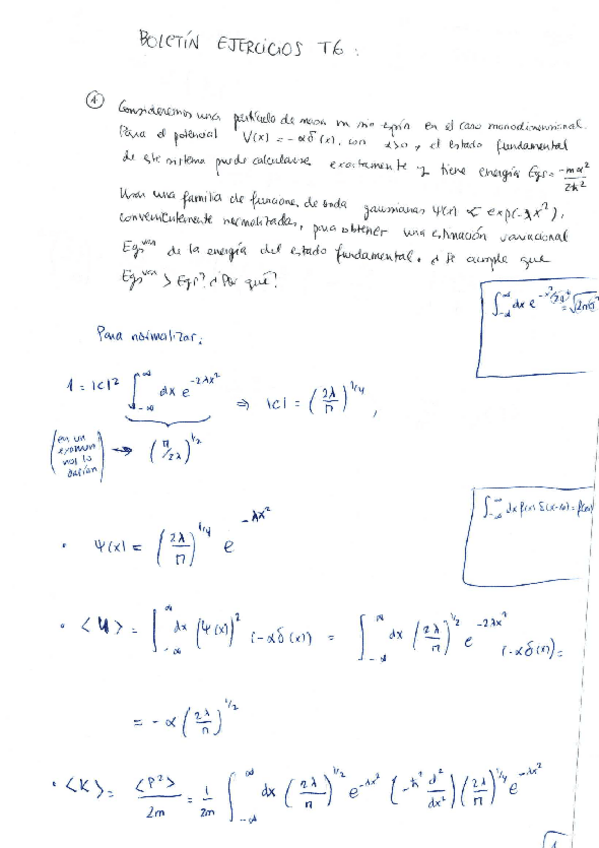 BOLETÍN EJERCICIOS T6:
① Consideremos una partícula de masa m sin espín en el caso monodimensional.
Para el potencial V(x) = -αδ(x), con α>0, el estado fundamental
de este sistema puede calcularse exactamente y tiene energía Egs = -mα²/2ħ²
Usar una familia de funciones de onda gaussianas Ψ(x) ∝ exp(-λx²),
convenientemente normalizadas, para obtener una estimación variacional
Egs^var de la energía del estado fundamental. ¿Se cumple que
Egs^var > Egs? ¿Por qué?
∫_{-∞}^{∞} dx e^{-x²/2σ²} = √(2πσ²)
Para normalizar:
1 = |c|² ∫_{-∞}^{∞} dx e^{-2λx²} ⇒ |c| = (2λ/π)^{1/4},
(en un examen nos lo darían) → (π/2λ)^{1/2}
∫_{-∞}^{∞} dx f(x) δ(x-x₀) = f(x₀)
· Ψ(x) = (2λ/π)^{1/4} e^{-λx²}
· <U> = ∫_{-∞}^{∞} dx (Ψ(x))² (-αδ(x)) = ∫_{-∞}^{∞} dx (2λ/π)^{1/2} e^{-2λx²} (-αδ(x)) =
= -α (2λ/π)^{1/2}
· <K> = <P²>/2m = 1/2m ∫_{-∞}^{∞} dx (2λ/π)^{1/2} e^{-λx²} (-ħ² d²/dx²) (2λ/π)^{1/4} e^{-λx²}